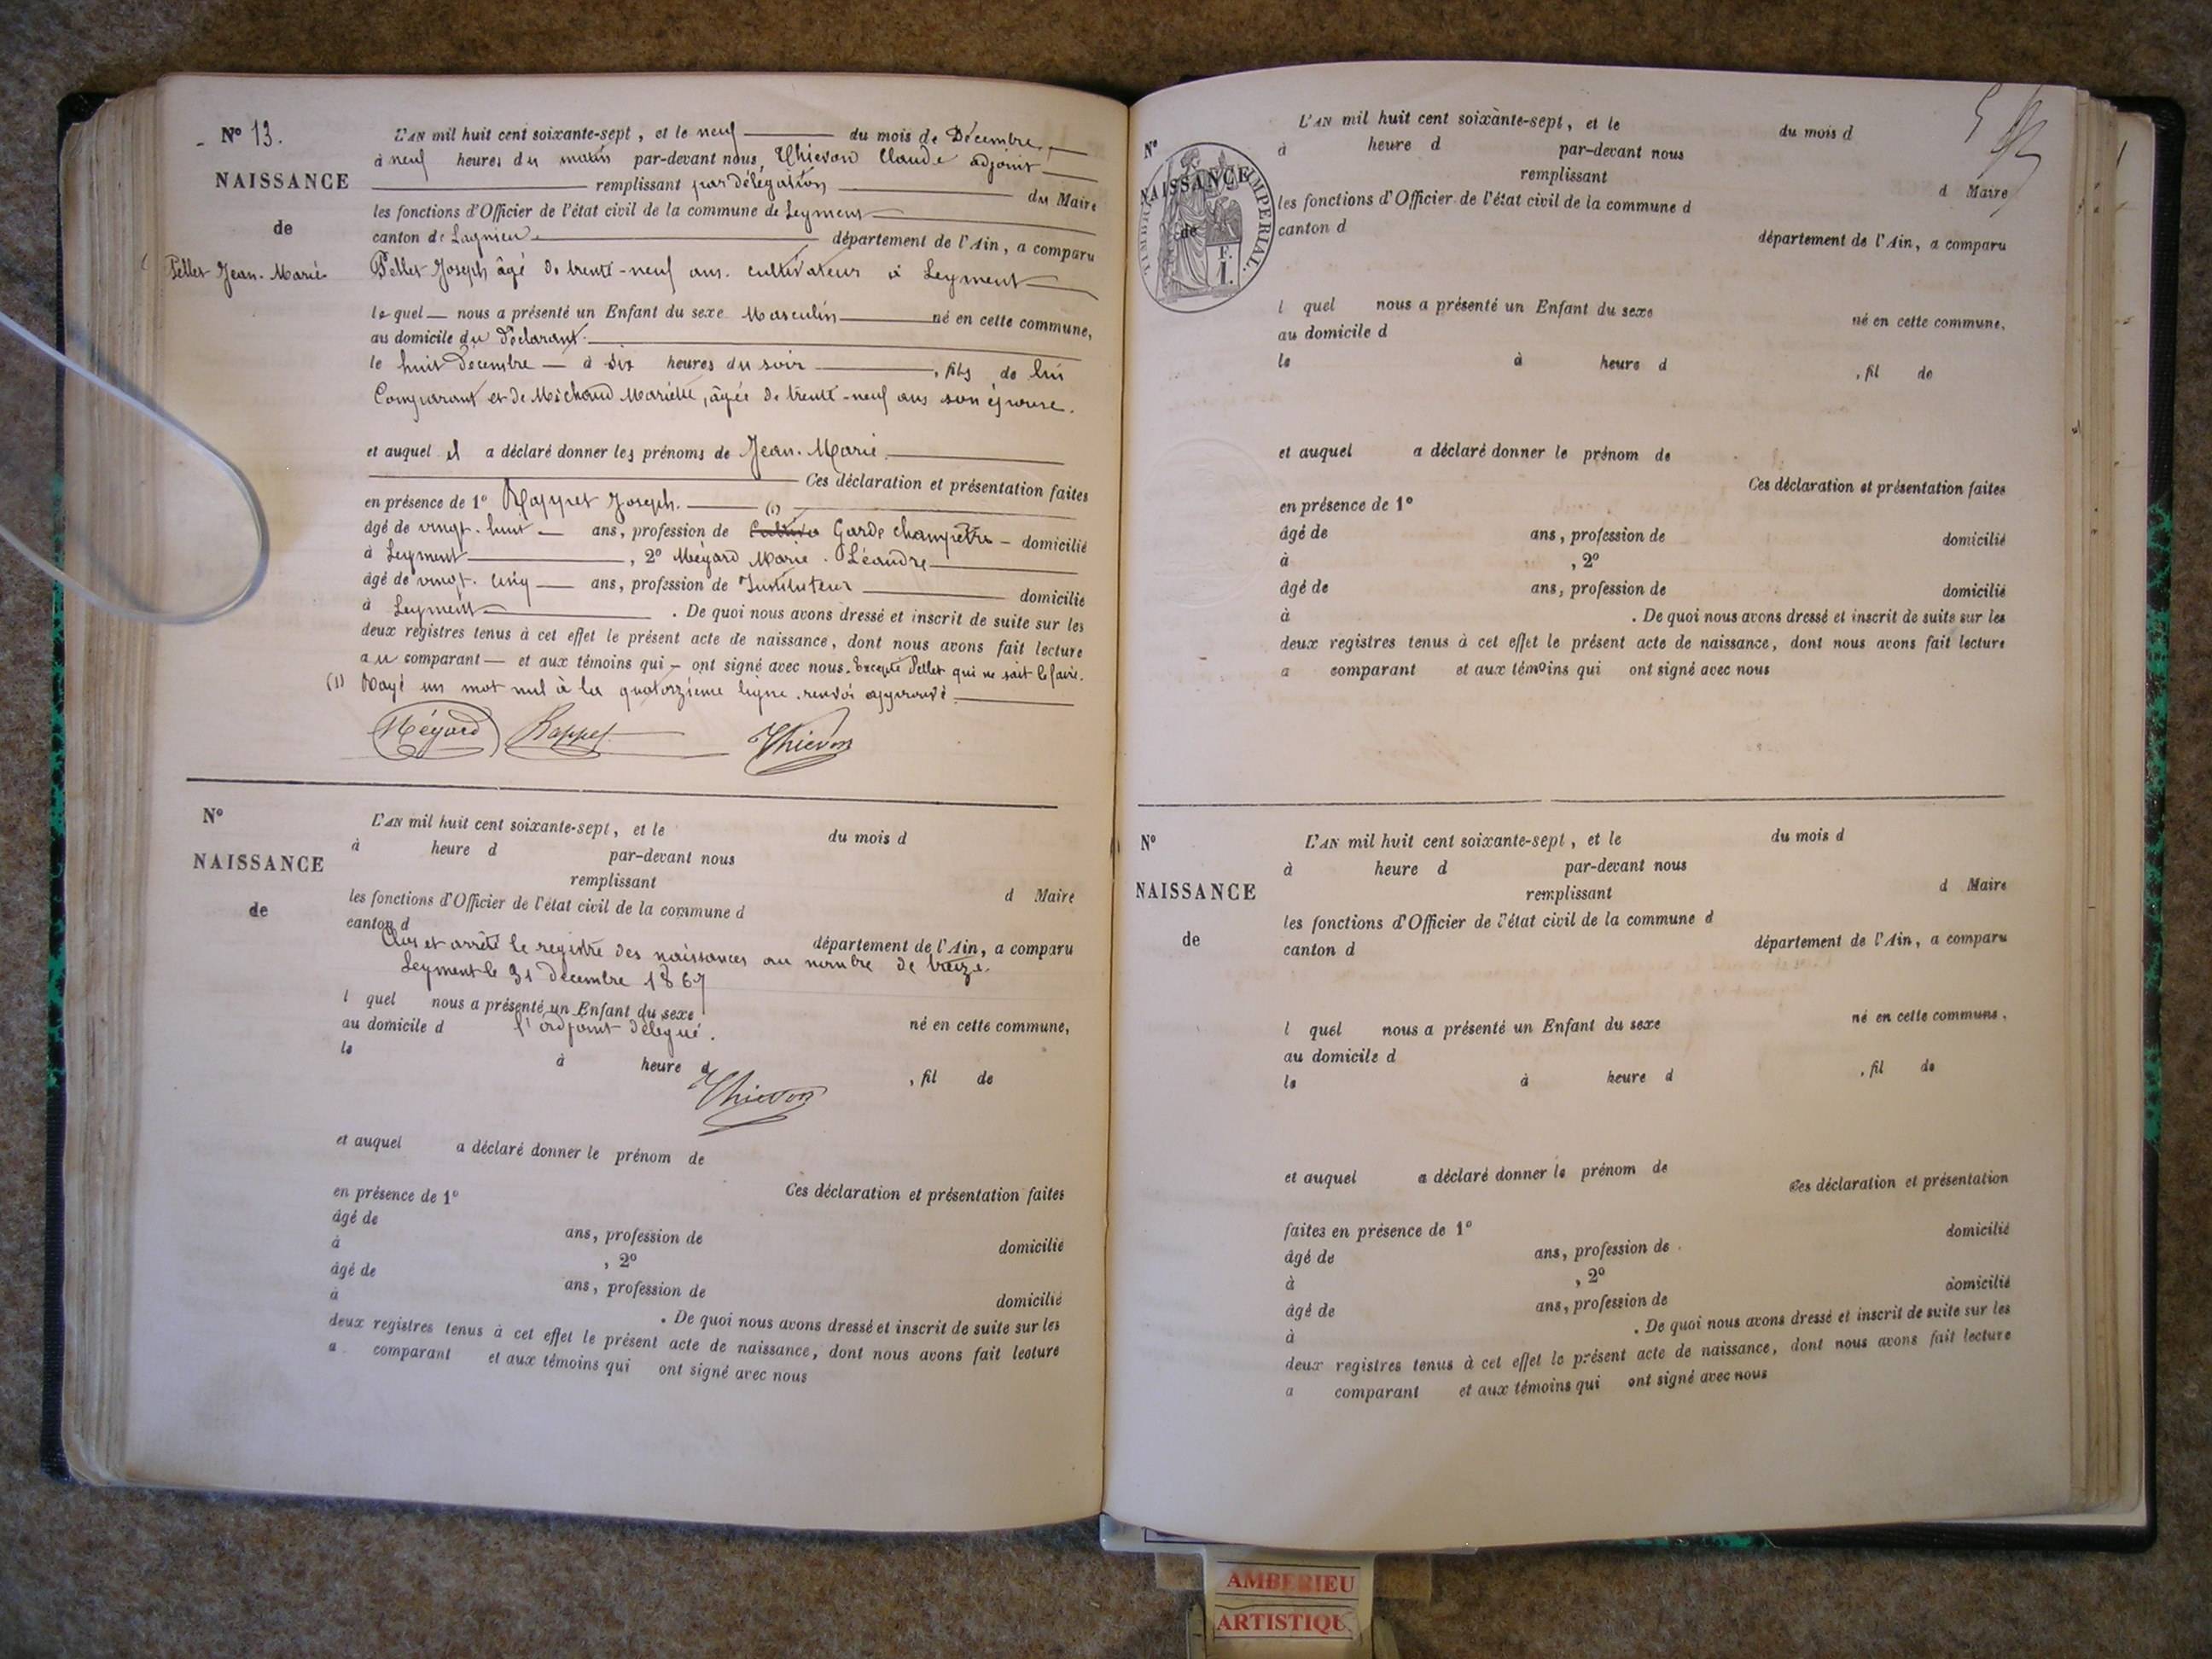 Nº 13.
NAISSANCE
de
Pellet Jean-Marie
L'AN mil huit cent soixante-sept, et le neuf du mois de Décembre
à neuf heures du matin par-devant nous, Thievon Claude adjoint
remplissant par délégation du Maire
les fonctions d'Officier de l'état civil de la commune de Leyment
canton de Lagnieu département de l'Ain, a comparu
Pellet Joseph âgé de trente-neuf ans. cultivateur à Leyment
lequel nous a présenté un Enfant du sexe Masculin né en cette commune,
au domicile du Déclarant.
le huit Décembre à six heures du soir, fils de lui
Comparant et de Michaud Mariette, âgée de trente-neuf ans son épouse.
et auquel il a déclaré donner les prénoms de Jean-Marie.
Ces déclaration et présentation faites
en présence de 1º Rappet Joseph. (1)
âgé de vingt-huit ans, profession de Garde champêtre domicilié
à Leyment, 2º Mégard Marie-Léandre
âgé de vingt-cinq ans, profession de Instituteur domicilié
à Leyment. De quoi nous avons dressé et inscrit de suite sur les
deux registres tenus à cet effet le présent acte de naissance, dont nous avons fait lecture
au comparant et aux témoins qui ont signé avec nous. Excepté Pellet qui ne sait le faire.
(1) Rayé un mot nul à la quatorzième ligne. renvoi approuvé.
Mégard Rappet Thievon
Nº
NAISSANCE
de
L'AN mil huit cent soixante-sept, et le du mois d
à heure d par-devant nous
remplissant d Maire
les fonctions d'Officier de l'état civil de la commune d
canton d département de l'Ain, a comparu
Clos et arrêté le registre des naissances au nombre de treize.
Leyment le 31 décembre 1867
l quel nous a présenté un Enfant du sexe né en cette commune,
l'adjoint délégué.
au domicile d
le à heure d , fil de
Thievon
et auquel a déclaré donner le prénom de
Ces déclaration et présentation faites
en présence de 1º
âgé de ans, profession de domicilié
à , 2º
âgé de ans, profession de domicilié
à . De quoi nous avons dressé et inscrit de suite sur les
deux registres tenus à cet effet le présent acte de naissance, dont nous avons fait lecture
a comparant et aux témoins qui ont signé avec nous
Nº
NAISSANCE
de
TIMBRE IMPERIAL.
1 F.
L'AN mil huit cent soixante-sept, et le du mois d
à heure d par-devant nous
remplissant d Maire
les fonctions d'Officier de l'état civil de la commune d
canton d département de l'Ain, a comparu
l quel nous a présenté un Enfant du sexe né en cette commune,
au domicile d
le à heure d , fil de
et auquel a déclaré donner le prénom de
Ces déclaration et présentation faites
en présence de 1º
âgé de ans, profession de domicilié
à , 2º
âgé de ans, profession de domicilié
à . De quoi nous avons dressé et inscrit de suite sur les
deux registres tenus à cet effet le présent acte de naissance, dont nous avons fait lecture
a comparant et aux témoins qui ont signé avec nous
Nº
NAISSANCE
de
L'AN mil huit cent soixante-sept, et le du mois d
à heure d par-devant nous
remplissant d Maire
les fonctions d'Officier de l'état civil de la commune d
canton d département de l'Ain, a comparu
l quel nous a présenté un Enfant du sexe né en cette commune,
au domicile d
le à heure d , fil de
et auquel a déclaré donner le prénom de
Ces déclaration et présentation
faites en présence de 1º domicilié
âgé de ans, profession de
à , 2º domicilié
âgé de ans, profession de
à . De quoi nous avons dressé et inscrit de suite sur les
deux registres tenus à cet effet le présent acte de naissance, dont nous avons fait lecture
a comparant et aux témoins qui ont signé avec nous
AMBERIEU
ARTISTIQU